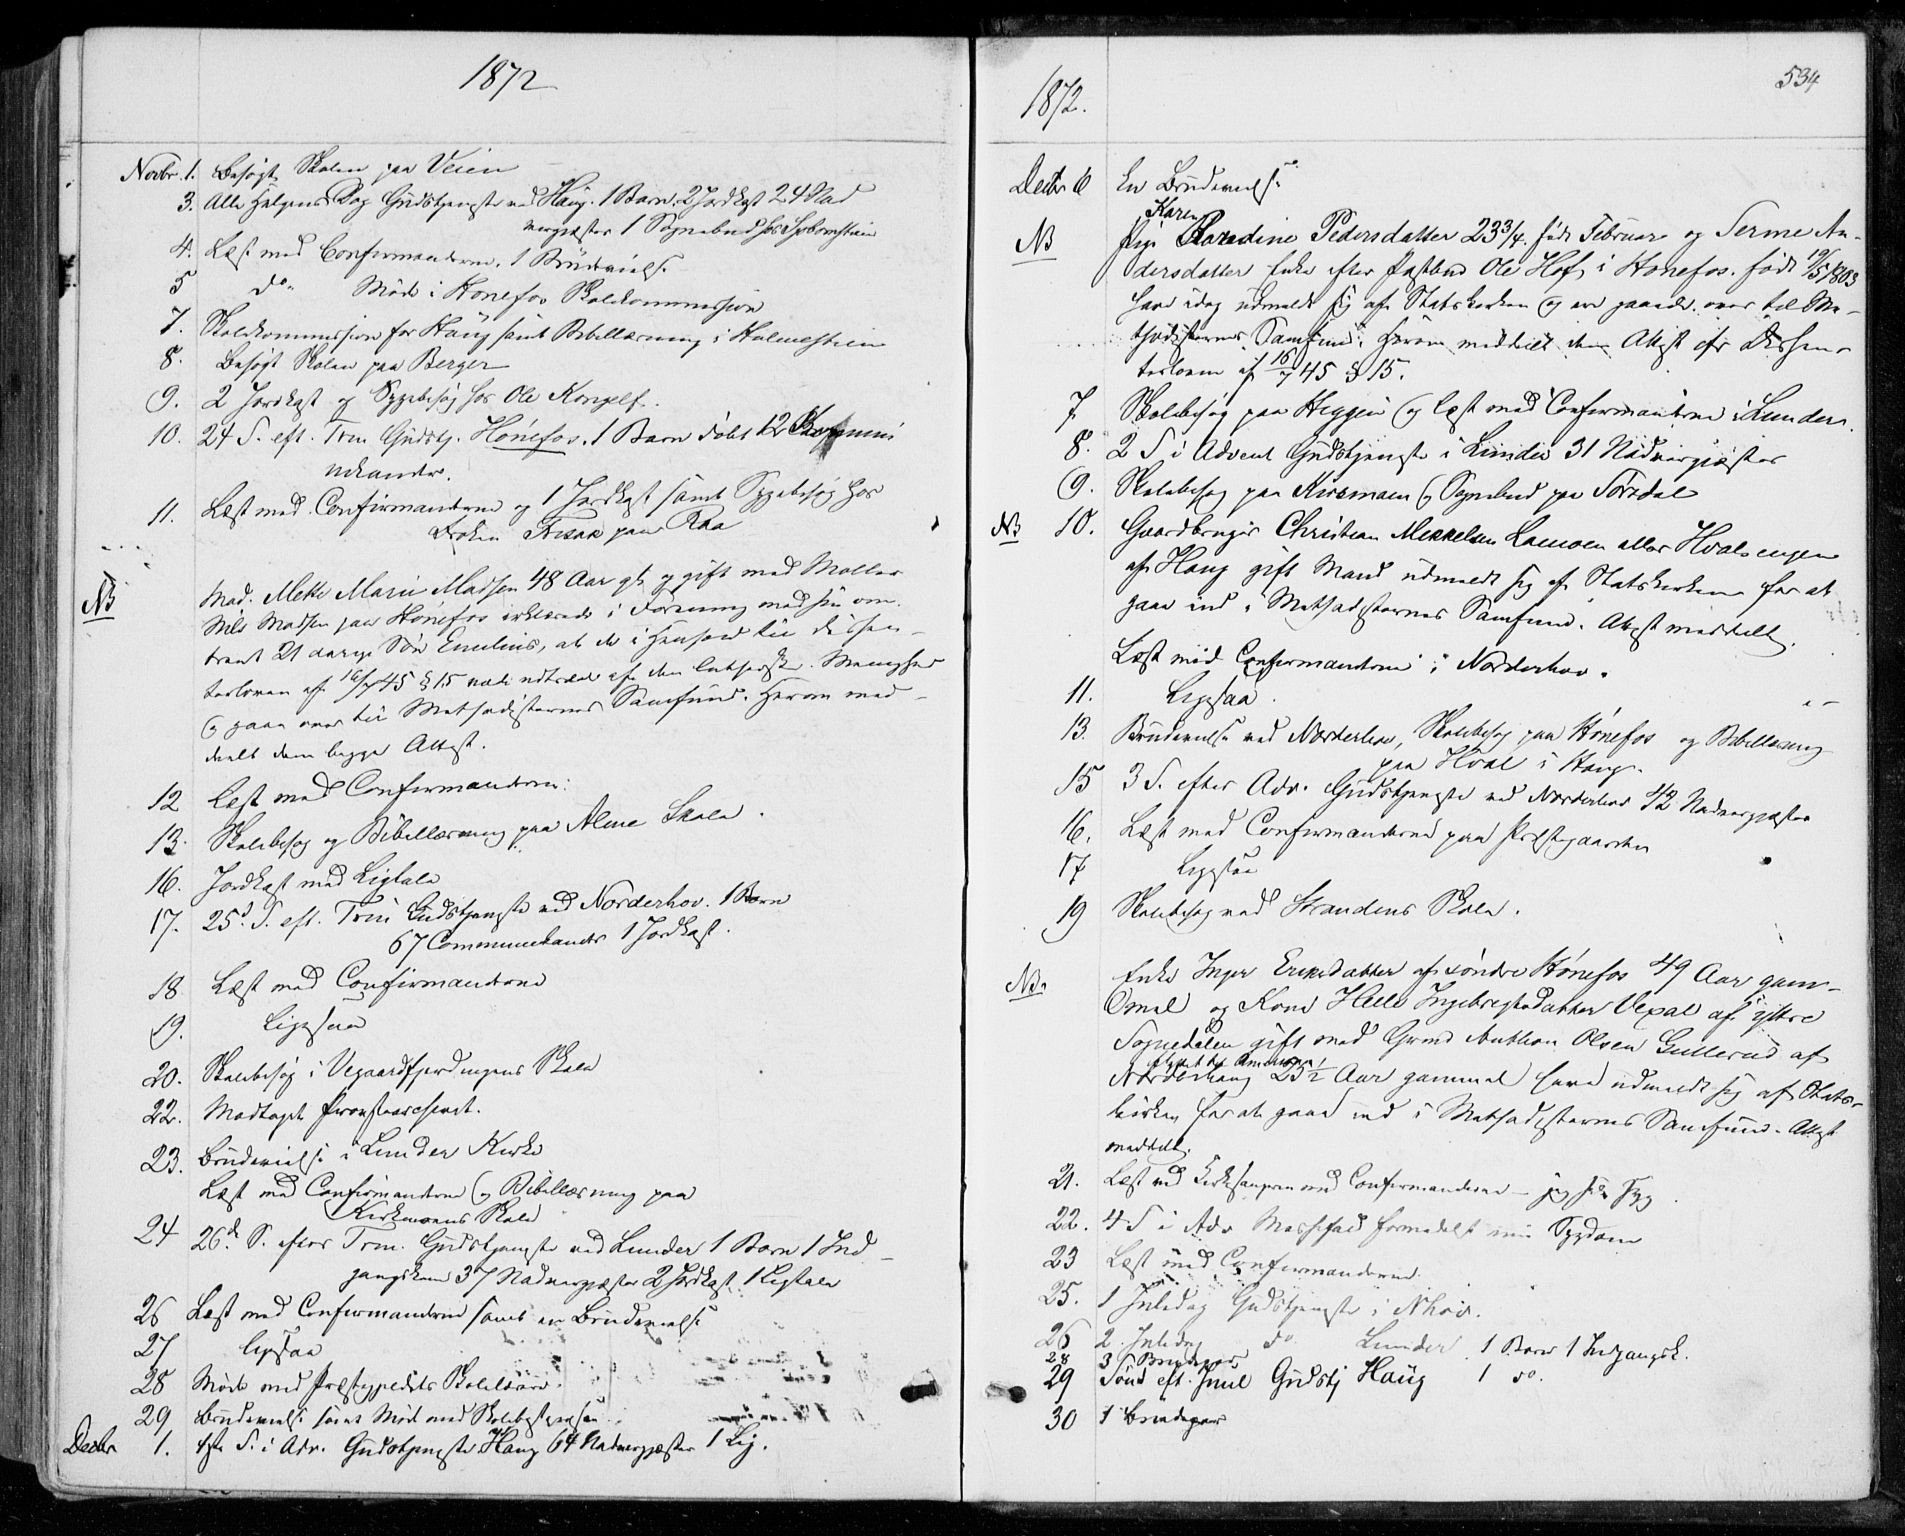 1872
Novbr. 1. Besøgt Skolen paa Veien
3. Alle Helgens Dag Gudstjeneste ved Haug. 1 Barn, 2 Jordkast 24 Nad
vergjæster 1 Sognebud hos
4. Læst med Confirmanderne. 1 Brudevielse
5 do. Møde i Hønefos Skolekommission
7. Skolekommission for Haug samt Bibellæsning i
8. Besøgt Skolen paa Berger
9. 2 Jordkast og Sygebesøg hos Ole
10. 24 S. eft. Trin Gudstj. Hønefos. 1 Barn døbt 12 Kommu
nikanter.
11. Læst med Confirmanderne og 1 Jordkast samt Sygebesøg hos
Frøken paa Raa
NB Mad. Mette Marie Madsen 48 Aar gl. og gift med Møller
Nils Madsen paa Hønefos erklærede i Forening med sin om-
trent 21 aarige Søn Emilius, at de i Henhold til Dissen-
terloven af 16/7 45 § 15 vilde udtræde af den lutherske Menighed
og gaa over til Methodisternes Samfund. Herom med-
deelt dem begge Attest.
12 Læst med Confirmanderne.
13. Skolebesøg og Bibellæsning paa Alme Skole.
16. Jordkast med Ligtale
17. 25d. S. eft. Trin Gudstjeneste ved Norderhov. 1 Barn
67 Communikanter 1 Jordkast.
18 Læst med Confirmanderne
19. Ligesaa
20. Skolebesøg i Vegaardfjerdingens Skole
22. Modtaget
23. Brudevielse i Lunder Kirke
Læst med Confirmanderne og Bibellæsning paa
Kirkemoens Skole
24 26d. S. efter Trin. Gudstjeneste ved Lunder 1 Barn 1 Ind-
gangskone 37 Nadvergjæster 2 Jordkast, 1 Ligtale
26 Læst med Confirmanderne samt en Brudevielse
27 Ligesaa
28 Møde med Præstegjeldets Skolelærere
29 Brudevielse samt Møde med Skolebestyrelsen
Decbr 1. 1ste S. i Adv. Gudstjeneste Haug 64 Nadvergjæster 1 Lig.
534
1872.
Decbr 6 En Brudevielse
Karen
NB Pige Paradine Pedersdatter 23 3/4. født Februar og Serine An-
dersdatter Enke efter Postbud Ole Hof i Hønefos. født 19/5 1803
have idag udmeldt sig af Statskirken og ere gaaede over til Me-
thodisternes Samfund. Herom meddelt dem Attest efter Dissen-
terloven af 16/7 45 § 15.
7 Skolebesøg paa Heggen og læst med Confirmanderne i Lunder.
8. 2 S i Advent Gudstjeneste i Lunder 31 Nadvergjæster
9. Skolebesøg paa Kirkemoen og Sognebud paa Sørdal
NB 10. Gaardbruger Christian Mikkelsen Lamoen eller Hvalsengen
af Haug gift Mand udmeldt sig af Statskirken for at
gaae ind i Methodisternes Samfund. Attest meddelt.
Læst med Confirmanderne i Norderhov.
11. Ligesaa
13. Brudevielse ved Norderhov, Skolebesøg paa Hønefos og Bibellæsning
paa Hval i Haug.
15 3 S. efter Adv. Gudstjeneste ved Norderhov 42 Nadvergjæster
16. Læst med Confirmanderne paa Præstegaarden
17 Ligesaa
19 Skolebesøg ved Strandens Skole.
NB. Enke Inger Eriksdatter af søndre Hønefos 49 Aar gam-
mel og Kone Helle Ingebrigtsdatter Vexal af ytre
Sognedalen gift med Grmd Anthon Olsen Gullerud af
afreist til Amerika
Norderhaug 25 1/2 Aar gammel have udmeldt sig af Stats-
kirken for at gaae ind i Methodisternes Samfund. Attest
meddelt.
21. Læst ved Kirkesangeren med Confirmanderne — jeg selv syg.
22. 4 S i Adv Messefald formedelst min Sygdom
23 Læst med Confirmanderne.
25. 1 Juledag Gudstjeneste i Nhov.
26 2 Juledag do Lunder 1 Barn 1 Indgangsk.
28 3 Brudepar
29 Sønd eft. Juul Gudstj Haug 1 do.
30 1 Brudepar